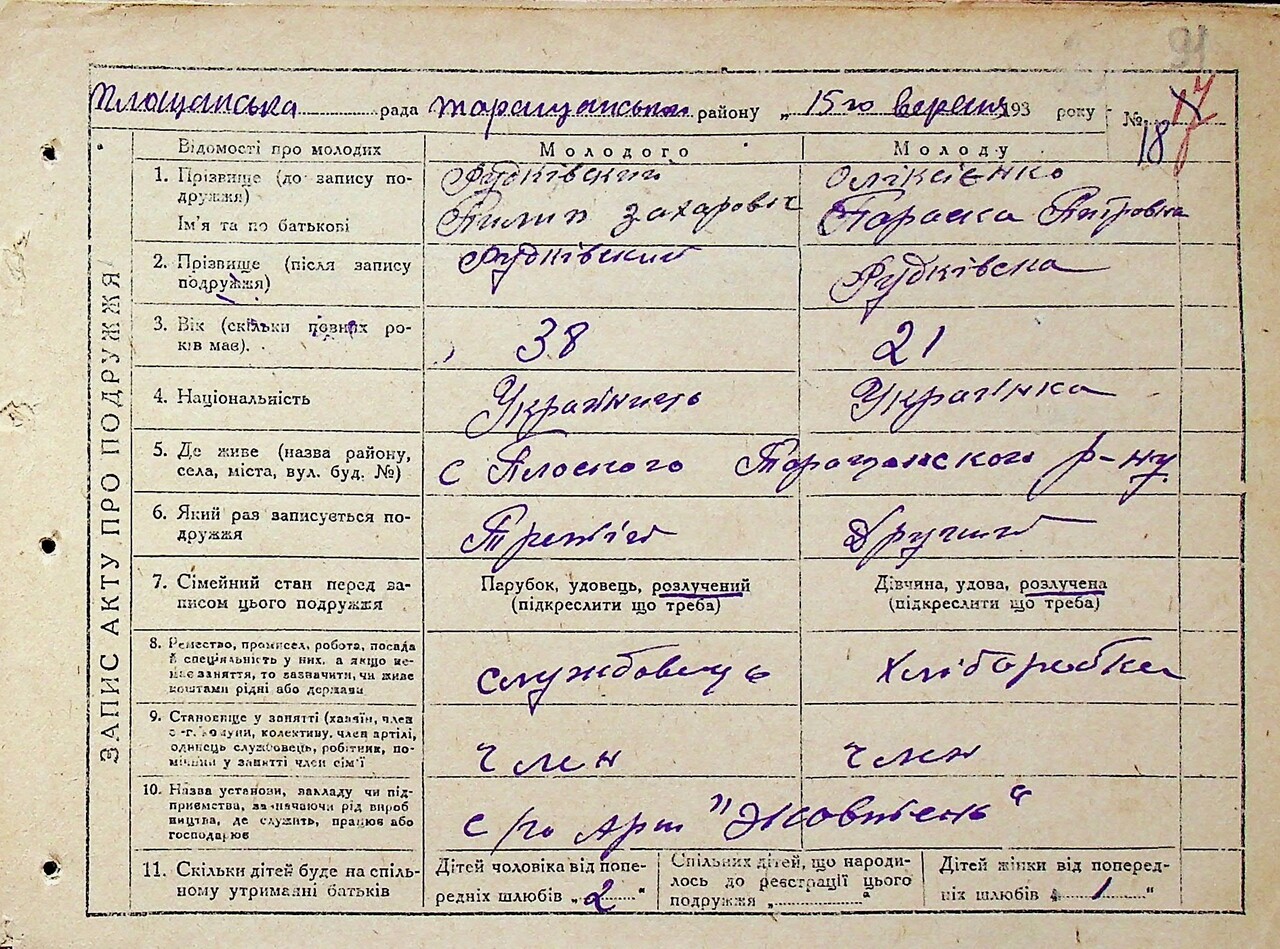 91
Площанська рада Таращанськи району „ 15го вересня 193 року № 17
18
ЗАПИС АКТУ ПРО ПОДРУЖЖЯ
Відомості про молодих Молодого Молоду
1. Прізвище (до запису по- Рудківський Оліксієнко
дружжя)
Ім'я та по батькові Пилип Захарович Параска Питровна
2. Прізвище (після запису Рудківський Рудківска
подружжя)
3. Вік (скільки повних ро- 38 21
ків має).
4. Національність Україниць Українка
5. Де живе (назва району,
села, міста, вул. буд. №) с Плоского Таращанского р-ну
6. Який раз записується по- Третій Другий
дружжя
7. Сімейний стан перед за- Парубок, удовець, розлучений Дівчина, удова, розлучена
писом цього подружжя (підкреслити що треба) (підкреслити що треба)
8. Ремество, промисел, робота, посада
й спеціяльність у них, а якщо не-
має заняття, то зазначити, чи живе службовець Хліборобка
коштами рідні або держави
9. Становище у занятті (хазяїн, член
с-г. комуни, колективу, член артілі,
одинець службовець, робітник, по- член член
мічний у занятті член сім'ї
10. Назва установи, закладу чи під-
приємства, зазначаючи рід вироб
ництва, де служить, працює або с/го Арт "Жовтень"
господарює
11. Скільки дітей буде на спіль- Дітей чоловіка від попе- Спільних дітей, що народи- Дітей жінки від поперед-
ному утриманні батьків редніх шлюбів „ 2 “ лось до реєстрації цього ніх шлюбів „ 1 “
подружжя „ “